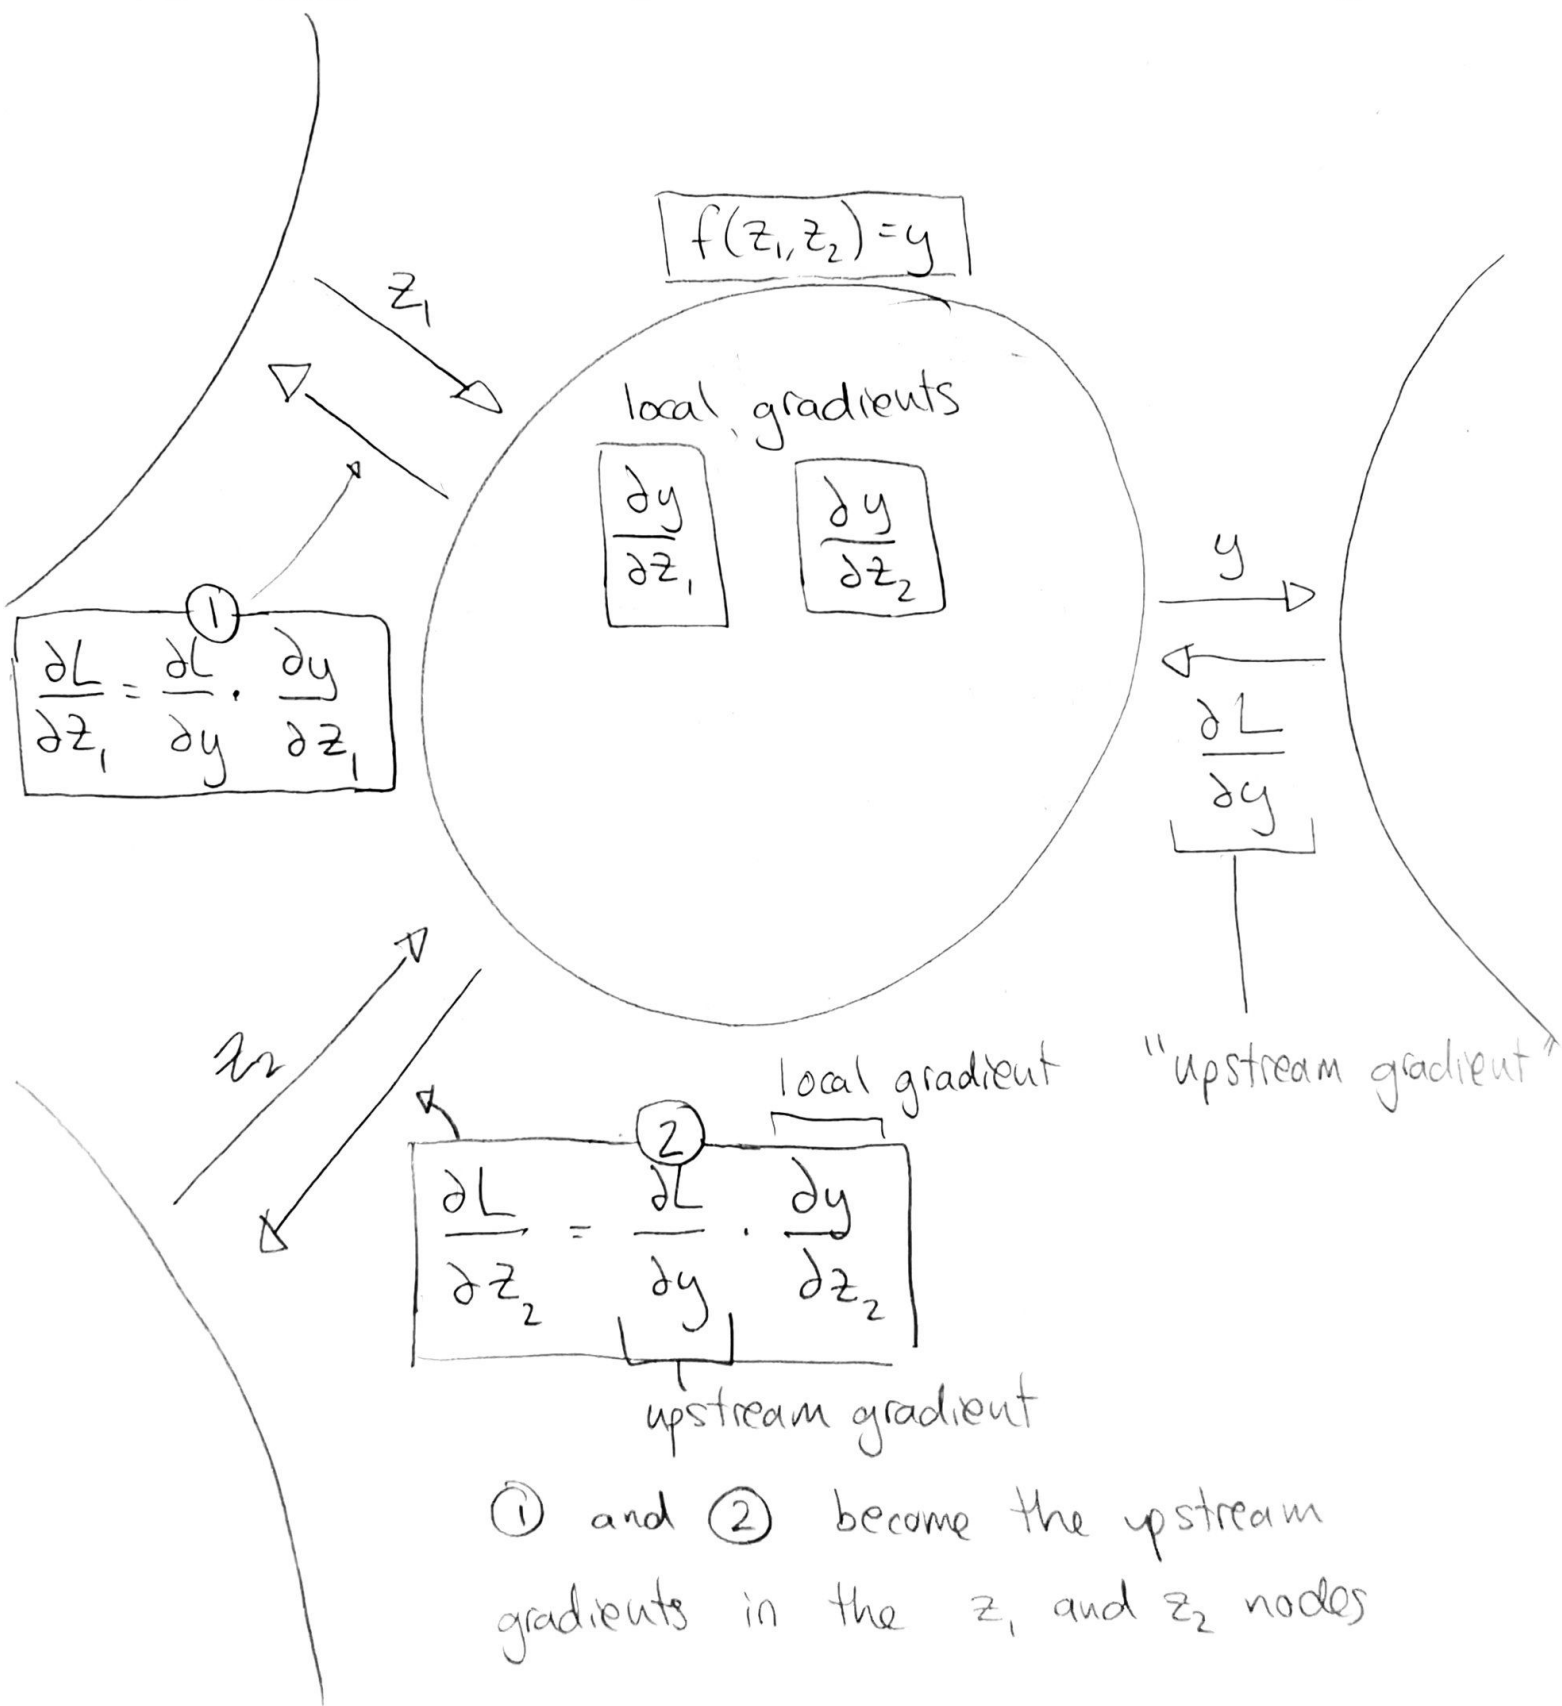 f(z₁, z₂) = y
z₁
local gradients
∂y/∂z₁ ∂y/∂z₂
y
①
∂L/∂z₁ = ∂L/∂y · ∂y/∂z₁
∂L/∂y
z₂
"upstream gradient"
local gradient
②
∂L/∂z₂ = ∂L/∂y · ∂y/∂z₂
upstream gradient
① and ② become the upstream
gradients in the z₁ and z₂ nodes